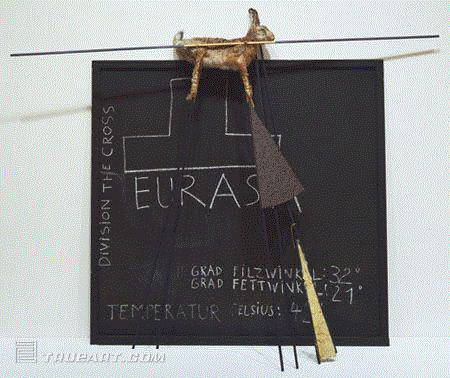 DIVISION THE CROSS
EURAS
GRAD FILZWINKEL: 32°
GRAD FETTWINKEL: 21°
TEMPERATUR CELSIUS: 4
TRUEART.COM